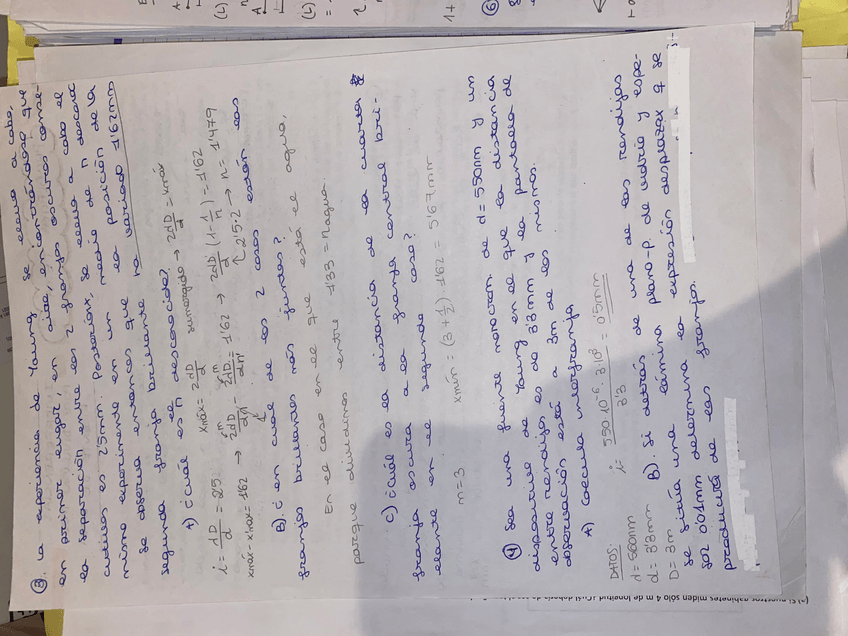 ③. La experiencia de Young se lleva a cabo,
en primer lugar, en aire, encontrándose que
la separación entre las 2 franjas oscuras conse-
cutivas es 2'5mm. Posteriorx, se lleva a cabo el
mismo experimento en un medio de n descono
se observa entonces que la posición de la
segunda franja brillante ha variado 1'62mm
A) ¿cuál es el n desconocido?
xmáx = 2λD/d sumergido → 2λD/d = xmáx
i = λD/d = 2'5
xmáx - x'máx = 1'62 → 2λD/dn - 2λD/dn' = 1'62 → 2λD/d (1 - 1/n) = 1'62
2'5·2 → n = 1'479
B). ¿en cuál de los 2 casos están las
franjas brillantes más juntas?
En el caso en el que está el agua,
porque dividimos entre 1'33 = nagua.
C) ¿Cuál es la distancia de la cuarta
franja oscura a la franja central bri-
llante en el segundo caso?
m=3 xmín = (3 + 1/2) · 1'62 = 5'67mm
④ Sea una fuente monocrom. de d = 550nm y un
dispositivo de Young en el que la distancia
entre rendijas es de 3'3mm y la pantalla de
observación está a 3m de las mismas.
A) Calcula interfranja
DATOS:
λ = 550nm
d = 3'3mm
D = 3m
i = 550·10⁻⁶ · 3·10³ / 3'3 = 0'5mm
B). Si detrás de una de las rendijas
se sitúa una lámina plano-p. de vidrio y espe-
sor 0'01mm determina la expresión desplazax q se
producirá de las franjas.